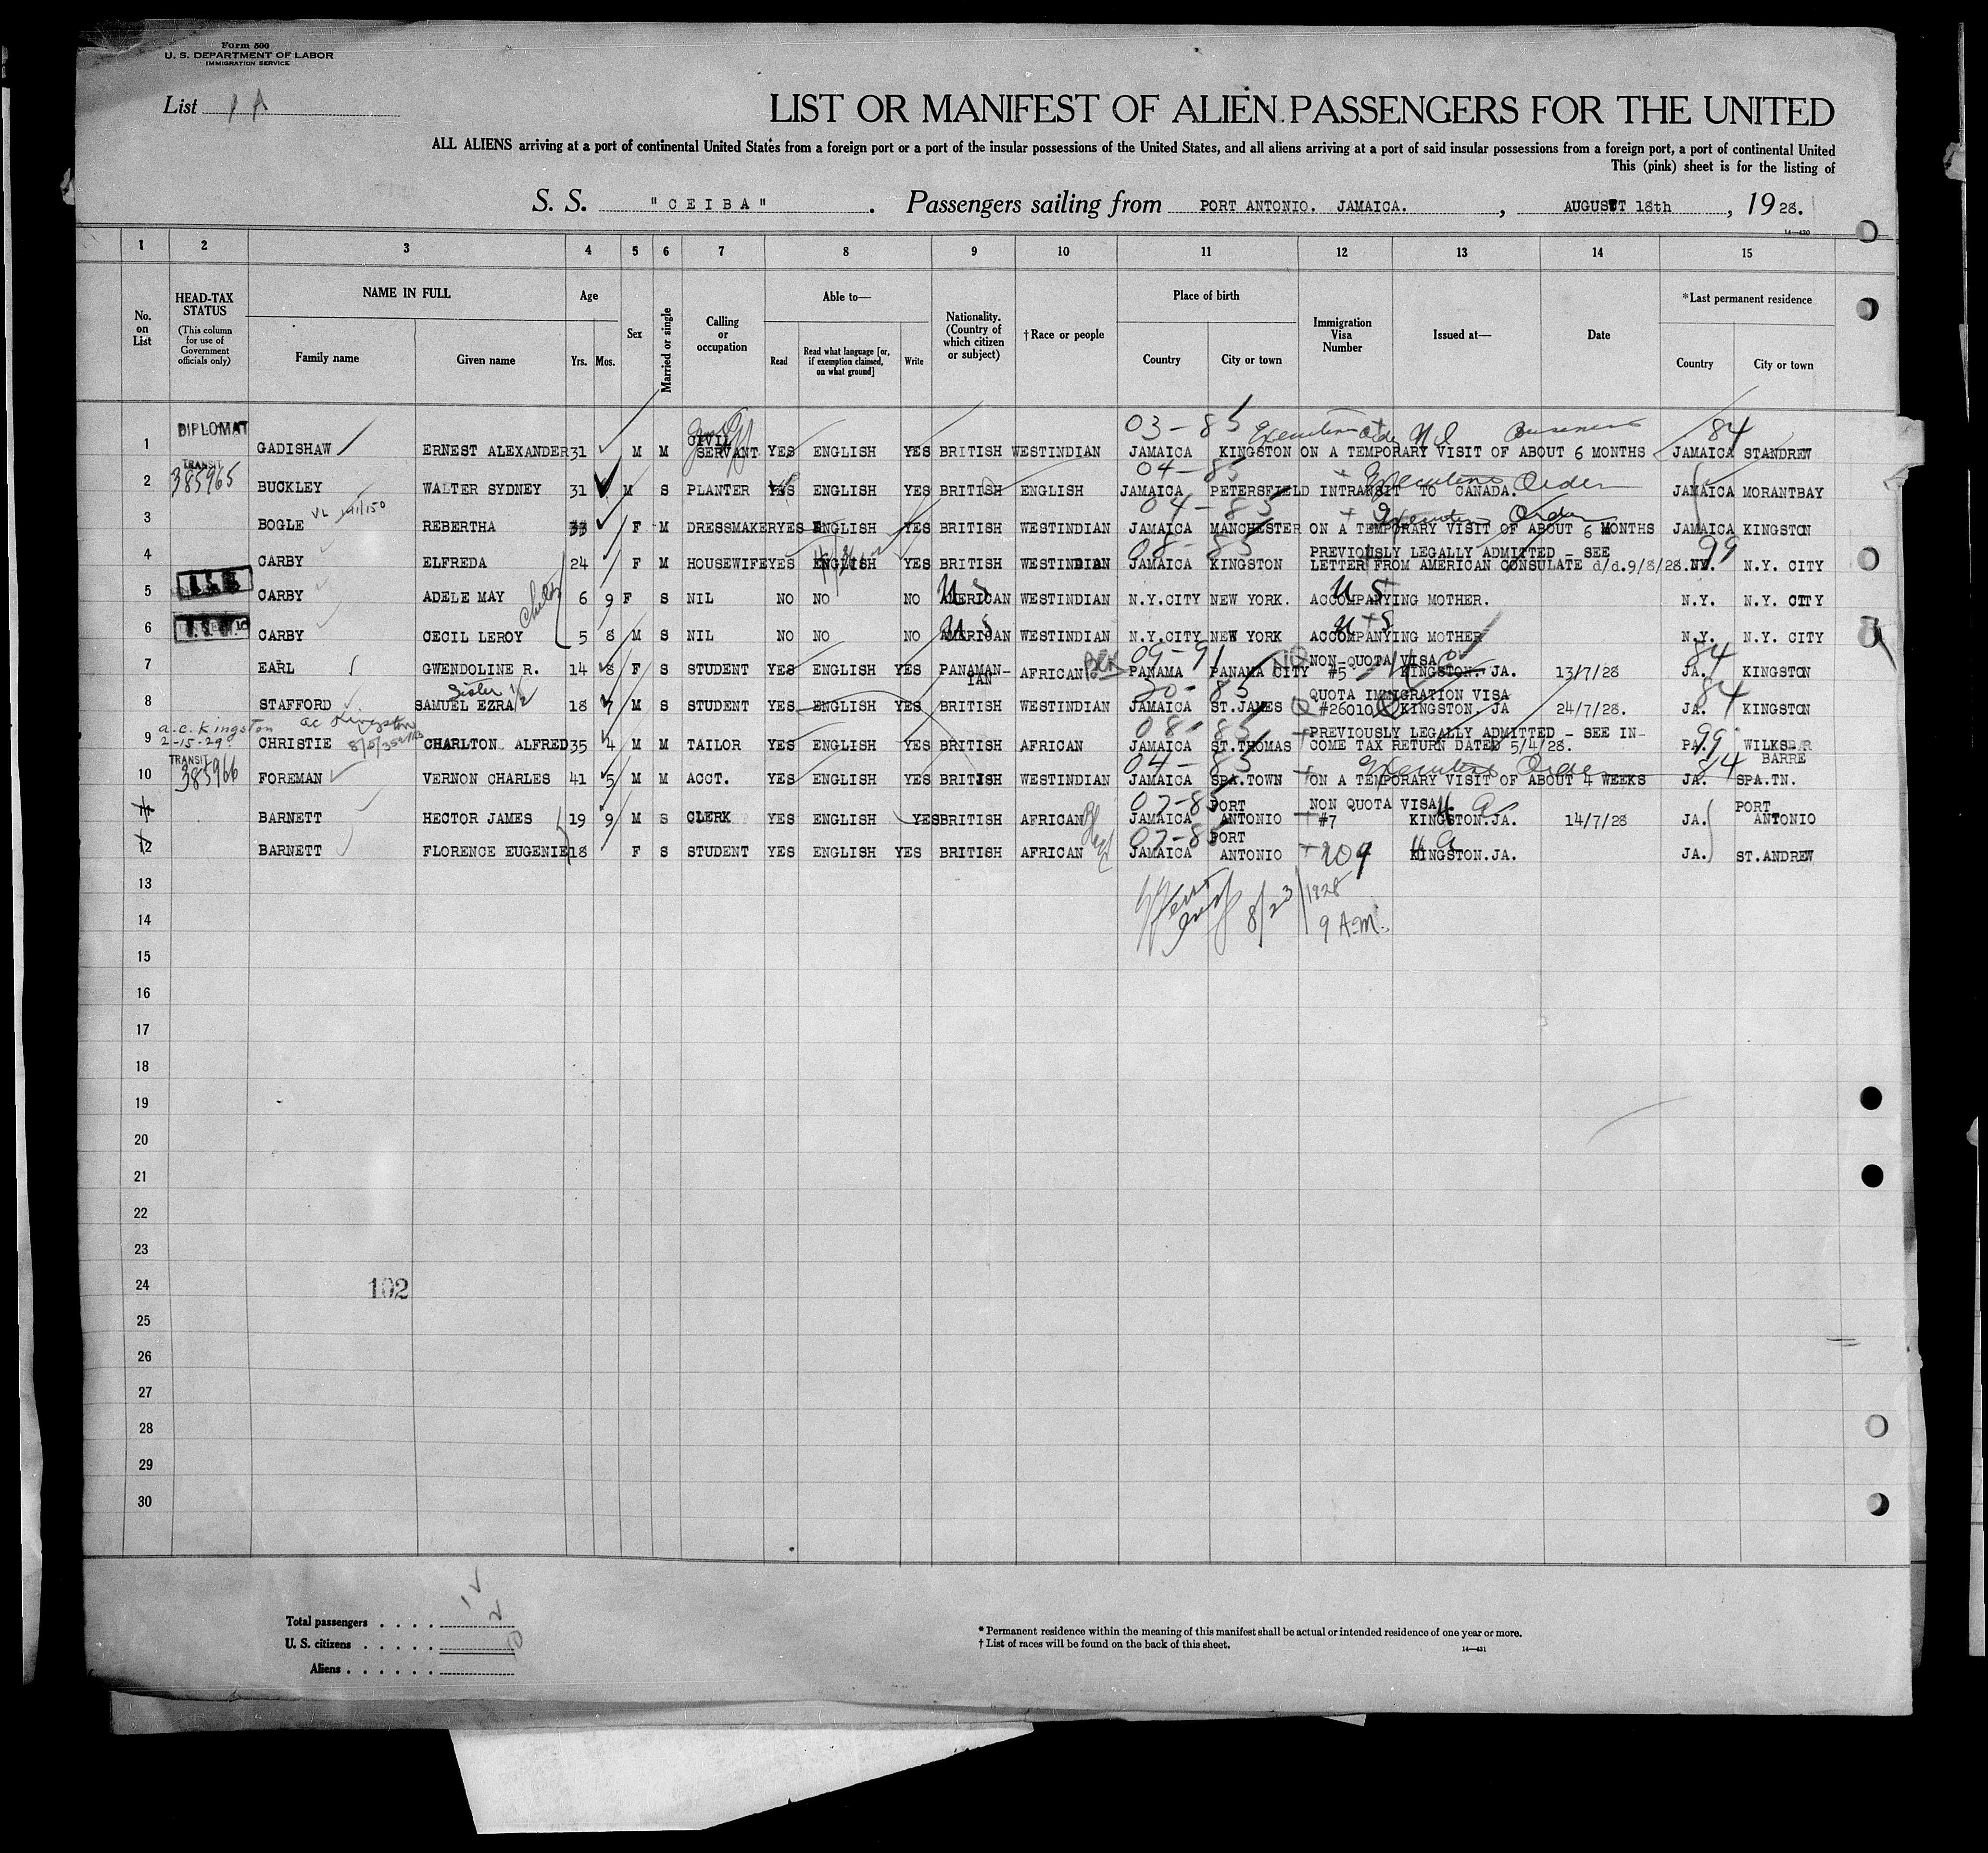 Form 500
U. S. DEPARTMENT OF LABOR
IMMIGRATION SERVICE
List 1 A
LIST OR MANIFEST OF ALIEN PASSENGERS FOR THE UNITED
ALL ALIENS arriving at a port of continental United States from a foreign port or a port of the insular possessions of the United States, and all aliens arriving at a port of said insular possessions from a foreign port, a port of continental United
This (pink) sheet is for the listing of
S. S. "CEIBA". Passengers sailing from PORT ANTONIO. JAMAICA., AUGUST 18th, 1928.
14—430
1 2 3 4 5 6 7 8 9 10 11 12 13 14 15
No. on List
HEAD-TAX STATUS (This column for use of Government officials only)
NAME IN FULL
Family name Given name
Age
Yrs. Mos.
Sex
Married or single
Calling or occupation
Able to—
Read Read what language [or, if exemption claimed, on what ground] Write
Nationality. (Country of which citizen or subject)
† Race or people
Place of birth
Country City or town
Immigration Visa Number
Issued at—
Date
*Last permanent residence
Country City or town
03-85 Executive Order Business 84
1 DIPLOMAT GADISHAW ERNEST ALEXANDER 31 M M CIVIL SERVANT YES ENGLISH YES BRITISH WESTINDIAN JAMAICA KINGSTON ON A TEMPORARY VISIT OF ABOUT 6 MONTHS JAMAICA STANDREW
04-85 Executive Order
2 TRANSIT 385965 BUCKLEY WALTER SYDNEY 31 M S PLANTER YES ENGLISH YES BRITISH ENGLISH JAMAICA PETERSFIELD INTRANSIT TO CANADA. JAMAICA MORANTBAY
04-85 Executive Order
3 BOGLE REBERTHA 33 F M DRESSMAKER YES ENGLISH YES BRITISH WESTINDIAN JAMAICA MANCHESTER ON A TEMPORARY VISIT OF ABOUT 6 MONTHS JAMAICA KINGSTON
08-85 99
4 CARBY ELFREDA 24 F M HOUSEWIFE YES ENGLISH YES BRITISH WESTINDIAN JAMAICA KINGSTON PREVIOUSLY LEGALLY ADMITTED - SEE LETTER FROM AMERICAN CONSULATE d/d.9/8/28. NY. N.Y. CITY
5 CARBY ADELE MAY 6 9 F S NIL NO NO NO AMERICAN WESTINDIAN N.Y.CITY NEW YORK. ACCOMPANYING MOTHER. N.Y. N.Y. CITY
US US
6 CARBY CECIL LEROY 5 8 M S NIL NO NO NO AMERICAN WESTINDIAN N.Y.CITY NEW YORK ACCOMPANYING MOTHER N.Y. N.Y. CITY
US US
09-91 84
7 EARL GWENDOLINE R. 14 8 F S STUDENT YES ENGLISH YES PANAMAN-IAN AFRICAN PANAMA PANAMA CITY NON-QUOTA VISA #5 KINGSTON. JA. 13/7/28 JA. KINGSTON
Sister 84
8 STAFFORD SAMUEL EZRA 18 7 M S STUDENT YES ENGLISH YES BRITISH WESTINDIAN JAMAICA ST.JAMES QUOTA IMMIGRATION VISA #26010 KINGSTON. JA 24/7/28. JA. KINGSTON
a.c. Kingston
2-15-29
08-85 99
9 CHRISTIE CHARLTON ALFRED 35 4 M M TAILOR YES ENGLISH YES BRITISH AFRICAN JAMAICA ST.THOMAS PREVIOUSLY LEGALLY ADMITTED - SEE INCOME TAX RETURN DATED 5/4/28. PA. WILKSBAR BARRE
04-85 Executive Order 84
10 TRANSIT 385966 FOREMAN VERNON CHARLES 41 5 M M ACCT. YES ENGLISH YES BRITISH WESTINDIAN JAMAICA SPA.TOWN ON A TEMPORARY VISIT OF ABOUT 4 WEEKS JA. SPA.TN.
07-85
11 BARNETT HECTOR JAMES 19 9 M S CLERK YES ENGLISH YES BRITISH AFRICAN JAMAICA PORT ANTONIO NON QUOTA VISA #7 KINGSTON.JA. 14/7/28 JA. PORT ANTONIO
07-85
12 BARNETT FLORENCE EUGENIE 18 F S STUDENT YES ENGLISH YES BRITISH AFRICAN JAMAICA PORT ANTONIO 209 KINGSTON.JA. JA. ST.ANDREW
8/23/1928
9 A.M.
13
14
15
16
17
18
19
20
21
22
23
24
102
25
26
27
28
29
30
Total passengers . . . . 12
U. S. citizens . . . . . 2
Aliens . . . . . . 10
* Permanent residence within the meaning of this manifest shall be actual or intended residence of one year or more.
† List of races will be found on the back of this sheet.
14—431